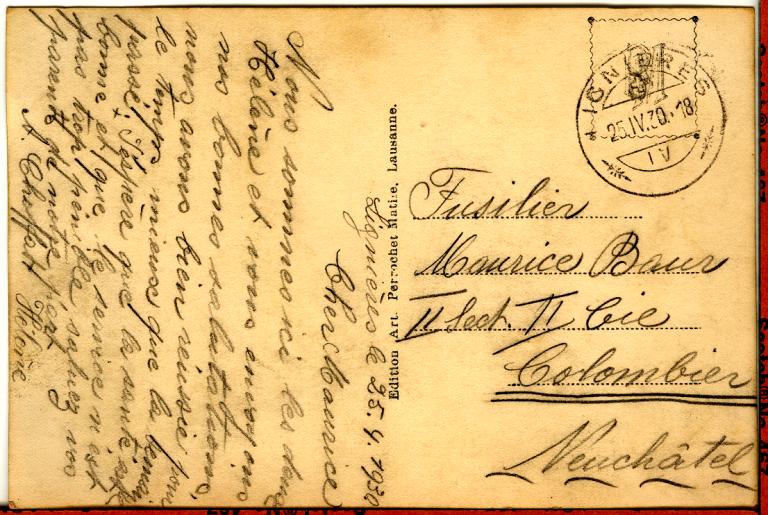 Lignières le 25.4.1930
Cher Maurice
Nous sommes ici les deux
Hélène et vous envoyons
nos bonnes salutations,
nous avons bien réussie pour
le temps mieux que la semaine
passé, J'espère que la santé est
bonne et que le service n'est
pas trop penible saluez vos
parents de notre part
A. Chiffart Hélène
Edition Art. Perrochet Mathe. Lausanne.
LIGNIÈRES
25.IV.30.18
Fusilier
Maurice Baur
II Sect. II Cie
Colombier
Neuchâtel